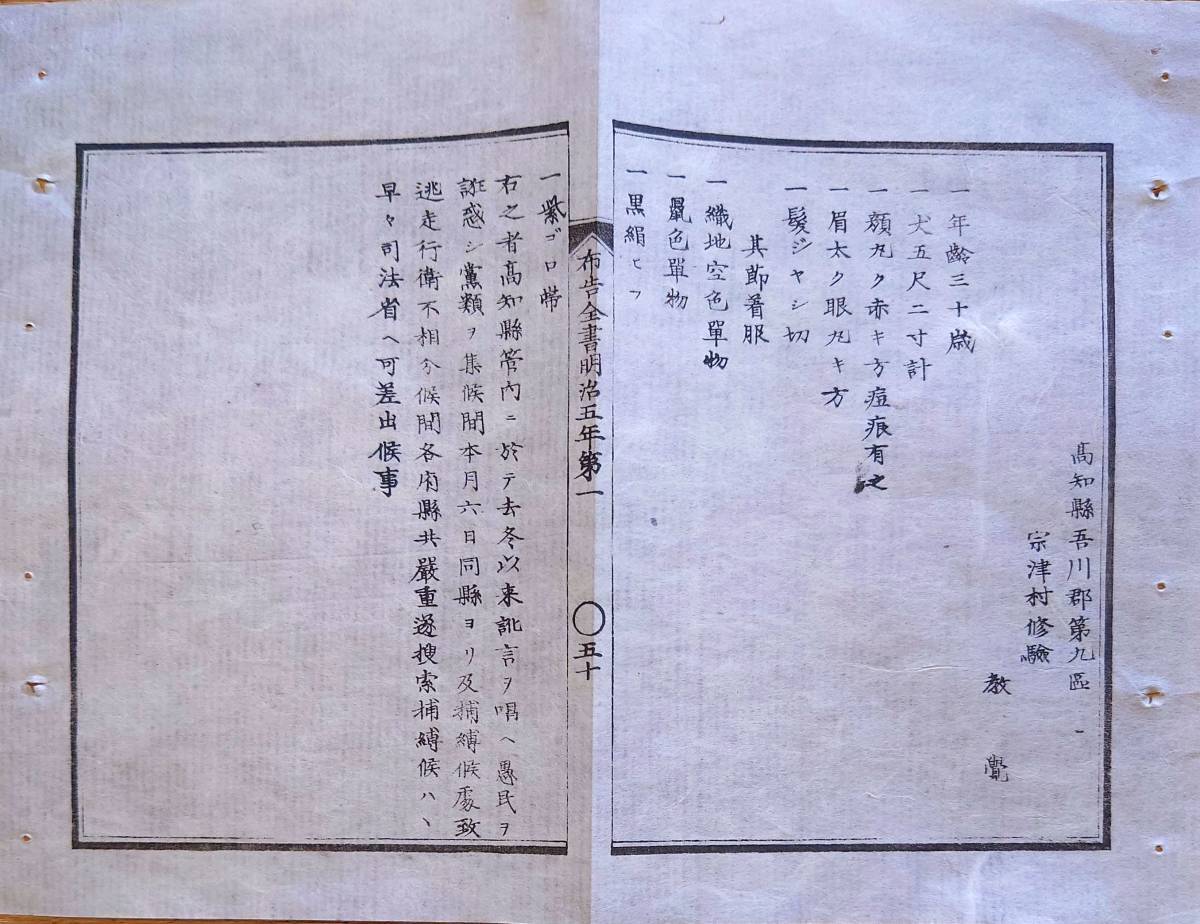 高知縣吾川郡第九區
宗津村修驗
教覺
一年齡三十歳
一丈五尺二寸計
一顔丸ク赤キ方痘痕有之
一眉太ク眼丸キ方
一髮ジヤシ切
其節着服
一織地空色單物
一鼠色單物
一黒絹ヒフ
布告全書明治五年第一
〇五十
一紫ゴロ帶
右之者高知縣管内ニ於テ去冬以来訛言ヲ唱ヘ愚民ヲ
誑惑シ黨類ヲ集候間本月六日同縣ヨリ及捕縛候處致
逃走行衛不相分候間各府縣共嚴重遂搜索捕縛候ハヽ
早々司法省ヘ可差出候事